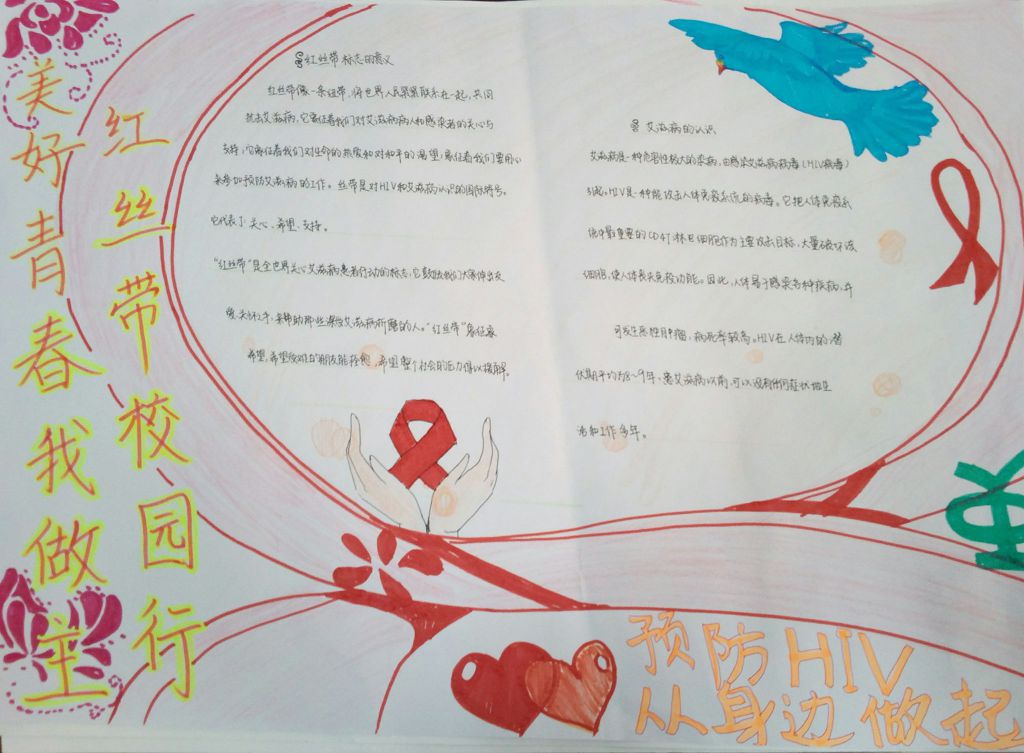 美好青春我做主
红丝带校园行
红丝带标志的意义
红丝带像一条纽带,将世界人民紧紧联系在一起,共同
抗击艾滋病,它象征着我们对艾滋病病人和感染者的关心与
支持;它象征着我们对生命的热爱和对和平的渴望;象征着我们要用心
来参加预防艾滋病的工作。丝带是对HIV和艾滋病认识的国际符号。
它代表了关心、希望、支持。
"红丝带"是全世界关心艾滋病患者行动的标志,它鼓励我们大家伸出关
爱关怀之手,来帮助那些深受艾滋病折磨的人。"红丝带"象征象
希望,希望受难的朋友能 ,希望整个社会的压力得以缓解。
艾滋病的认识
艾滋病是一种危害性极大的疾病,由感染艾滋病病毒(HIV病毒)
引起。HIV是一种能攻击人体免疫系统的病毒。它把人体免疫系
统中最重要的CD4T淋巴细胞作为主要攻击目标,大量破坏该
细胞,使人体丧失免疫功能。因此,人体易于感染各种疾病,并
可发生恶性肿瘤,病死率较高。HIV在人体内的潜
伏期平均为8~9年,患艾滋病以前,可以没有任何症状地生
活和工作多年。
预防HIV
从身边做起